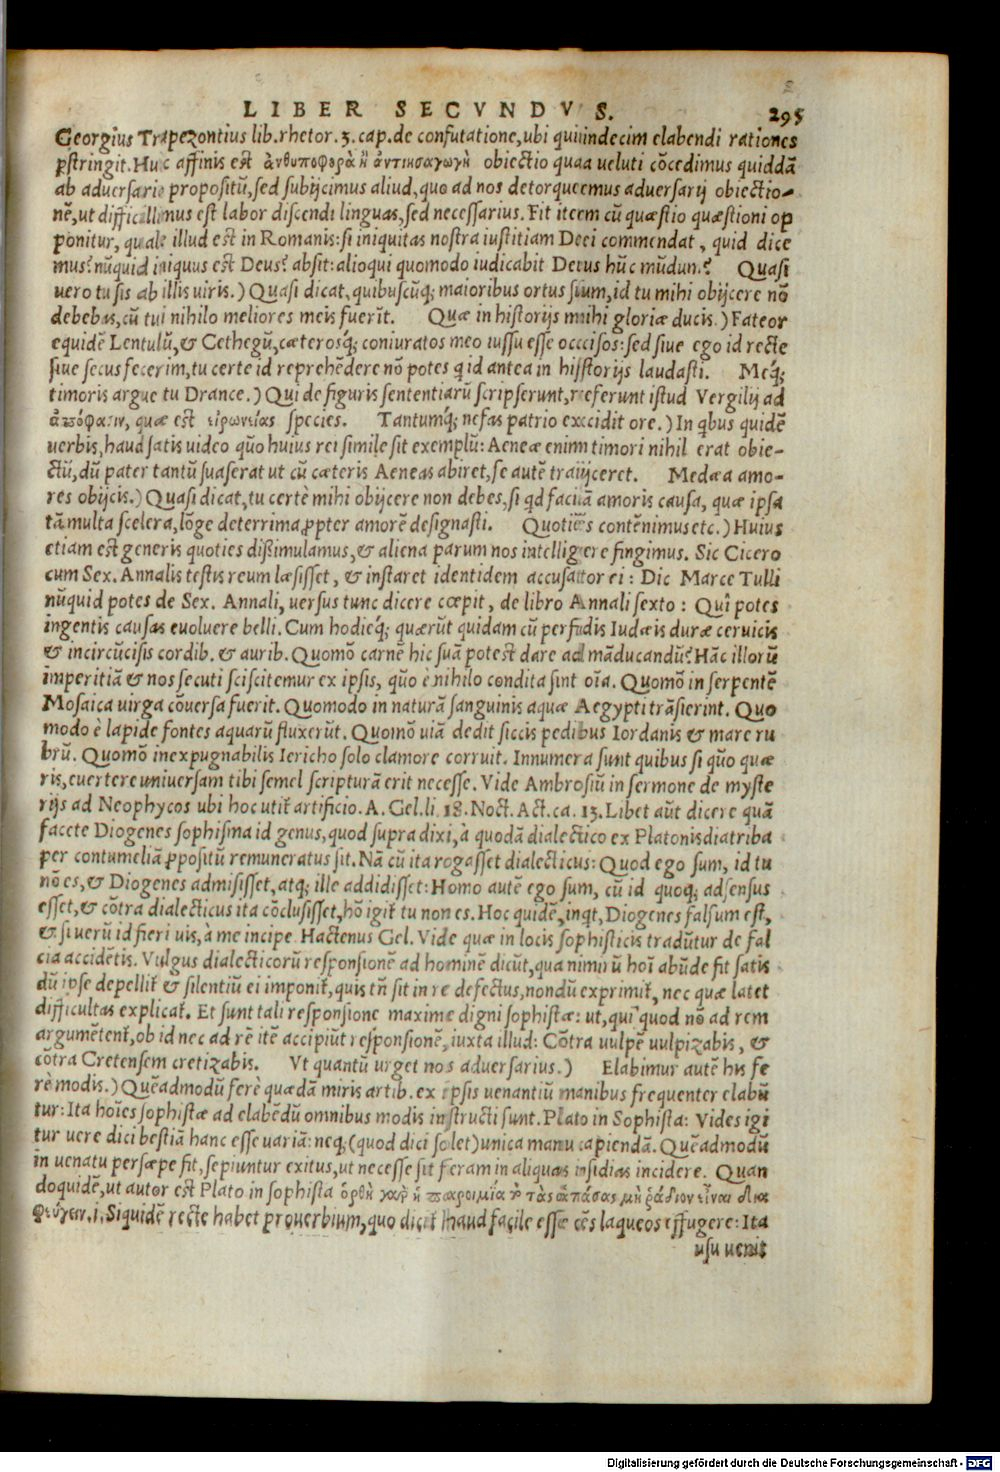 LIBER SECVNDVS. 295
Georgius Trapezontius lib.rhetor.3.cap.de confutatione,ubi quindecim elabendi rationes
p̄stringit.Huic affinis est ἀνθυποφορὰ ἢ ἀντεισαγωγὴ obiectio qua ueluti cōcedimus quiddā
ab aduersario propositū,sed subijcimus aliud,quo ad nos detorquemus aduersarij obiectio-
nē,ut difficillimus est labor discendi linguas,sed necessarius.Fit item cū quæstio quæstioni op
ponitur, quale illud est in Romanis:si iniquitas nostra iustitiam Dei commendat, quid dice
mus? nūquid iniquus est Deus? absit:alioqui quomodo iudicabit Deus hūc mūdum? Quasi
uero tu sis ab illis uiris.) Quasi dicat, quibuscūq; maioribus ortus sum,id tu mihi obijcere nō
debebas,cū tui nihilo meliores meis fuerīt. Quæ in historijs mihi gloriæ ducis.) Fateor
equidē Lentulū,& Cethegū,cæterosq́; coniuratos meo iussu esse occisos:sed siue ego id recte
siue secus fecerim,tu certe id reprehēdere nō potes q id antea in historijs laudasti. Meq́;
timoris argue tu Drance.) Qui de figuris sententiarū scripserunt,referunt istud Vergilij ad
ἀπόφασιν, quæ est εἰρωνείας species. Tantumq́; nefas patrio excidit ore.) In qbus quidē
uerbis,haud satis uideo quō huius rei simile sit exemplū: Aeneæ enim timori nihil erat obie-
ctū,dū pater tantū suaserat ut cū cæteris Aeneas abiret,se autē traijceret. Medæa amo-
res obijcis.) Quasi dicat,tu certè mihi obijcere non debes,si qd faciā amoris causa, quæ ipsa
tā multa scelera,lōge deterrima,ppter amorē designasti. Quoties contēnimus etc.) Huius
etiam est generis quoties dißimulamus,& aliena parum nos intelligere fingimus. Sic Cicero
cum Sex. Annalis testis reum læsisset, & instaret identidem accusator ei: Dic Marce Tulli
nūquid potes de Sex. Annali, uersus tunc dicere cœpit, de libro Annali sexto: Qui potes
ingentis causas euoluere belli. Cum hodieq́; quærūt quidam cū perfidis Iudæis duræ ceruicis
& incircūcisis cordib. & aurib. Quomō carnē hic suā potest dare ad māducandū? Hāc illorū
imperitiā & nos secuti sciscitemur ex ipsis, quō è nihilo condita sint oīa. Quomō in serpentē
Mosaica uirga cōuersa fuerit. Quomodo in naturā sanguinis aquæ Aegypti trāsierint. Quo
modo è lapide fontes aquarū fluxerūt. Quomō uiā dedit siccis pedibus Iordanis & mare ru
brū. Quomō inexpugnabilis Iericho solo clamore corruit. Innumera sunt quibus si quō quæ
ris,euertere uniuersam tibi semel scripturā erit necesse. Vide Ambrosiū in sermone de myste
rijs ad Neophycos ubi hoc utit̄ artificio. A. Gel.li. 18. Noct. Act. ca. 13. Libet aūt dicere quā
facete Diogenes sophisma id genus,quod supra dixi, à quodā dialectico ex Platonis diatriba
per contumeliā ppositū remuneratus sit. Nā cū ita rogasset dialecticus: Quod ego sum, id tu
nō es,& Diogenes admisisset,atq; ille addidisset: Homo autē ego sum, cū id quoq; adsensus
esset,& cōtra dialecticus ita cōclusisset,hō igit̄ tu non es. Hoc quidē,inqt, Diogenes falsum est,
& si uerū id fieri uis,à me incipe. Hactenus Gel. Vide quæ in locis sophisticis tradūtur de fal
cia accidētis. Vulgus dialecticorū responsionē ad hominē dicūt,qua nimirū hoī abūde fit satis
dū ipse depellit̄ & silentiū ei imponit̄,quis tn̄ sit in re defectus,nondū exprimit̄, nec quæ latet
difficultas explicat̄. Et sunt tali responsione maxime digni sophistæ: ut,qui quod nō ad rem
argumētent̄,ob id nec ad rē itē accipiūt responsionē,iuxta illud: Cōtra uulpē uulpizabis, &
cōtra Cretensem cretizabis. Vt quantū urget nos aduersarius.) Elabimur autē his fe
rè modis.) Quēadmodū ferè quædā miris artib. ex ipsis uenantiū manibus frequenter elabū
tur: Ita hoīes sophistæ ad elabēdū omnibus modis instructi sunt. Plato in Sophista: Vides igi
tur uere dici bestiā hanc esse uariā: neq; (quod dici solet) unica manu capiendā. Quēadmodū
in uenatu persæpe fit,sepiuntur exitus,ut necesse sit feram in aliquas insidias incidere. Quan
doquidē,ut autor est Plato in sophista ὀρθὴ γὰρ ἡ παροιμία τὸ τὰς ἁπάσας μὴ ῥάδιον εἶναι δια
φεύγειν.i. Siquidē recte habet prouerbium,quo dicit̄ haud facile esse oēs laqueos effugere: Ita
usu uenit
Digitalisierung gefördert durch die Deutsche Forschungsgemeinschaft - DFG